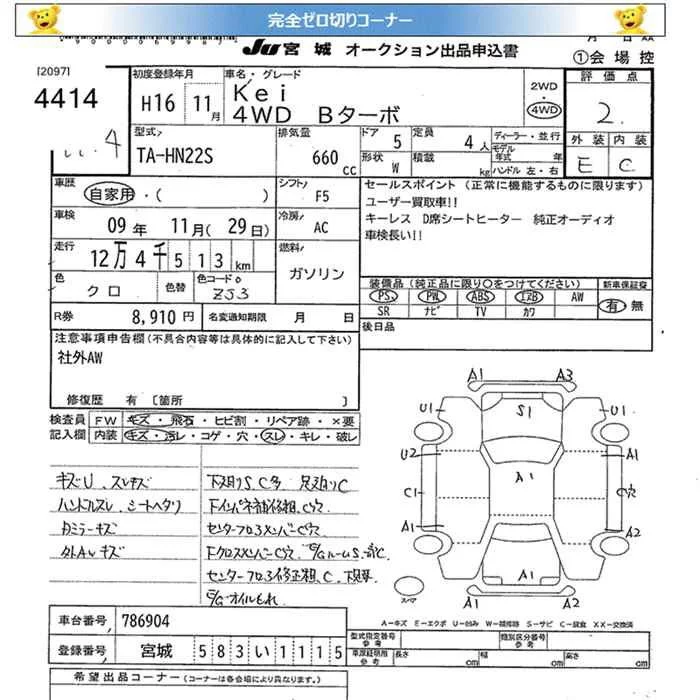 完全ゼロ切りコーナー
JU 宮城 オークション出品申込書
①会場控
[2097]
4414
初度登録年月
H16 11月
車名・グレード
Kei
4WD Bターボ
2WD
・
4WD
評価点
2.
外装 内装
E C
型式
TA-HN22S
排気量
660 cc
ドア 5
定員 4人
形状 W
積載 kg
ディーラー・並行
モデル年式 年
ハンドル 左・右
車歴
自家用・( )
シフト F5
車検
09年 11月(29日)
冷房 AC
走行
12万4千513km
燃料 ガソリン
色 クロ
色替
色コードo ZJ3
R券 8,910円
名変通知期限 月 日
セールスポイント (正常に機能するものに限ります)
ユーザー買取車!!
キーレス D席シートヒーター 純正オーディオ
車検長い!!
装備品(純正品に限り○をつけてください)
新車保証書
PS PW ABS エアB AW
SR ナビ TV カワ
有・無
後日品
注意事項申告欄(不具合内容等は具体的に記入して下さい)
社外AW
修復歴 有 [箇所 ]
検査員記入欄
FW キズ・飛石・ヒビ割・リペア跡・×要
内装 キズ・汚レ・コゲ・穴・スレ・キレ・破レ
キズU、スレキズ
ハンドルスレ、シートヘタリ
Rミラーキズ
外AWキズ
下廻りS,C多 足廻りC
センターフロ3メンバーC穴
FクロスメンバーC穴
E/Gオイルもれ
A1 A3
U1 S1 U1
U2 A1 A1
C1 C穴
A1 A2
A1 A2
スペア
A−キズ E−エクボ U−凹み W−補修跡 S−サビ C−腐食 XX−交換済
車台番号 786904
登録番号 宮城 583い1115
型式指定番号 参考
類別区分番号 参考
車庫証明用 参考 長さ cm 幅 cm 高さ cm
希望出品コーナー (コーナーは各会場により異なります)